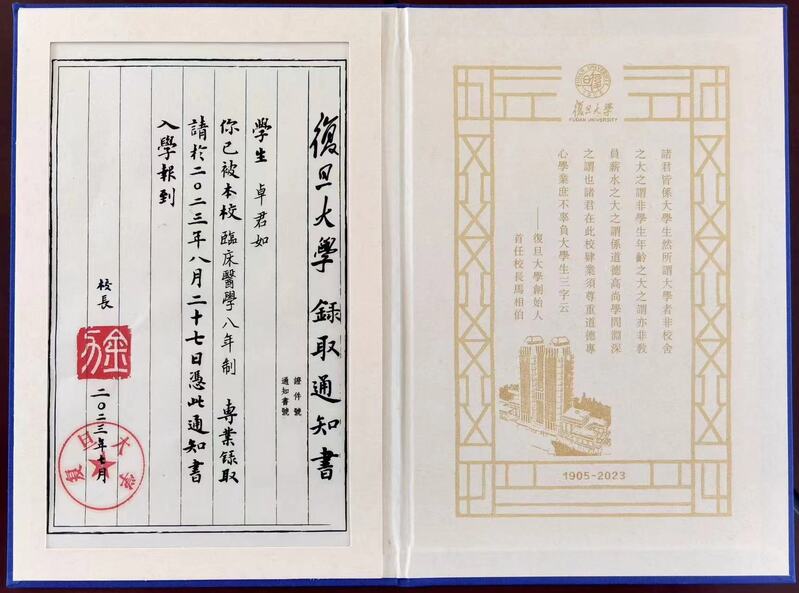 復旦大學 錄取通知書
證件號
通知書號
學生 卓君如
你已被本校 臨床醫學八年制 專業錄取
請於二〇二三年八月二十七日憑此通知書
入學報到
校長
金力
二〇二三年七月
复旦大学
復旦大學
FUDAN UNIVERSITY
諸君皆係大學生然所謂大學者非校舍
之大之謂非學生年齡之大之謂亦非教
員薪水之大之謂係道德高尚學問淵深
之謂也諸君在此校肄業須尊重道德專
心學業庶不辜負大學生三字云
——復旦大學創始人
首任校長馬相伯
1905-2023